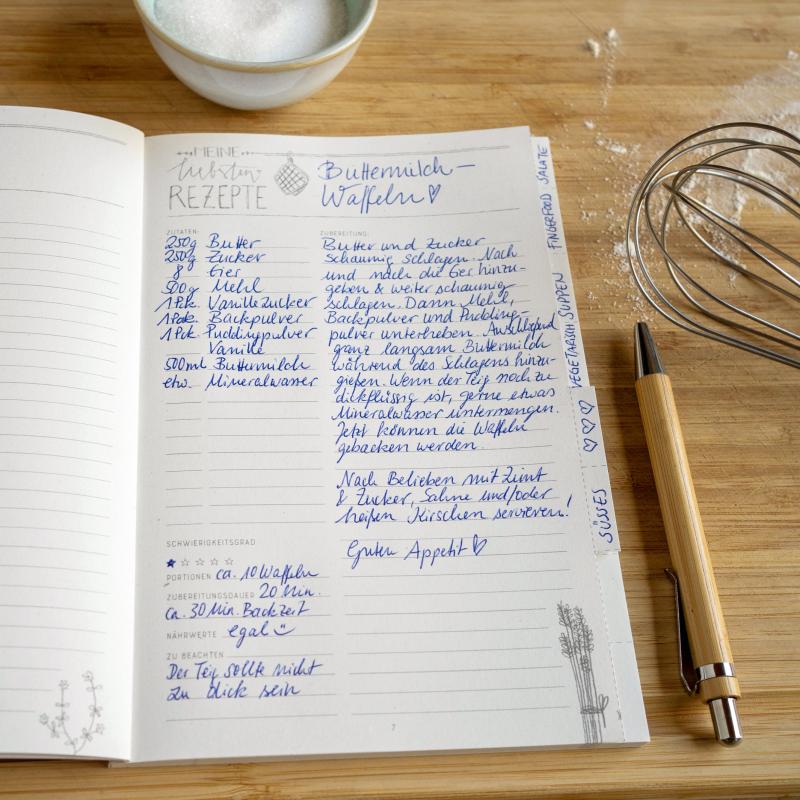 MEINE
liebsten
REZEPTE
Buttermilch-
Waffeln ♡
ZUTATEN:
250g Butter
250g Zucker
8 Eier
500g Mehl
1 Pck. Vanillezucker
1 Pck. Backpulver
1 Pck. Puddingpulver
Vanille
500ml Buttermilch
etw. Mineralwasser
ZUBEREITUNG:
Butter und Zucker
schaumig schlagen. Nach
und nach die Eier hinzu-
geben & weiter schaumig
schlagen. Dann Mehl,
Backpulver und Pudding-
pulver unterheben. Anschließend
ganz langsam Buttermilch
während des Schlagens hinzu-
gießen. Wenn der Teig noch zu
dickflüssig ist, gerne etwas
Mineralwasser untermengen.
Jetzt können die Waffeln
gebacken werden.
Nach Belieben mit Zimt
& Zucker, Sahne und/oder
heißen Kirschen servieren!
Guten Appetit ♡
SCHWIERIGKEITSGRAD
★ ☆ ☆ ☆ ☆
PORTIONEN ca. 10 Waffeln
ZUBEREITUNGSDAUER 20 Min.
ca. 30 Min. Backzeit
NÄHRWERTE egal
ZU BEACHTEN
Der Teig sollte nicht
zu dick sein
7
SALATE
FINGERFOOD
SUPPEN
VEGETARISCH
♡ ♡ ♡
SÜSSES